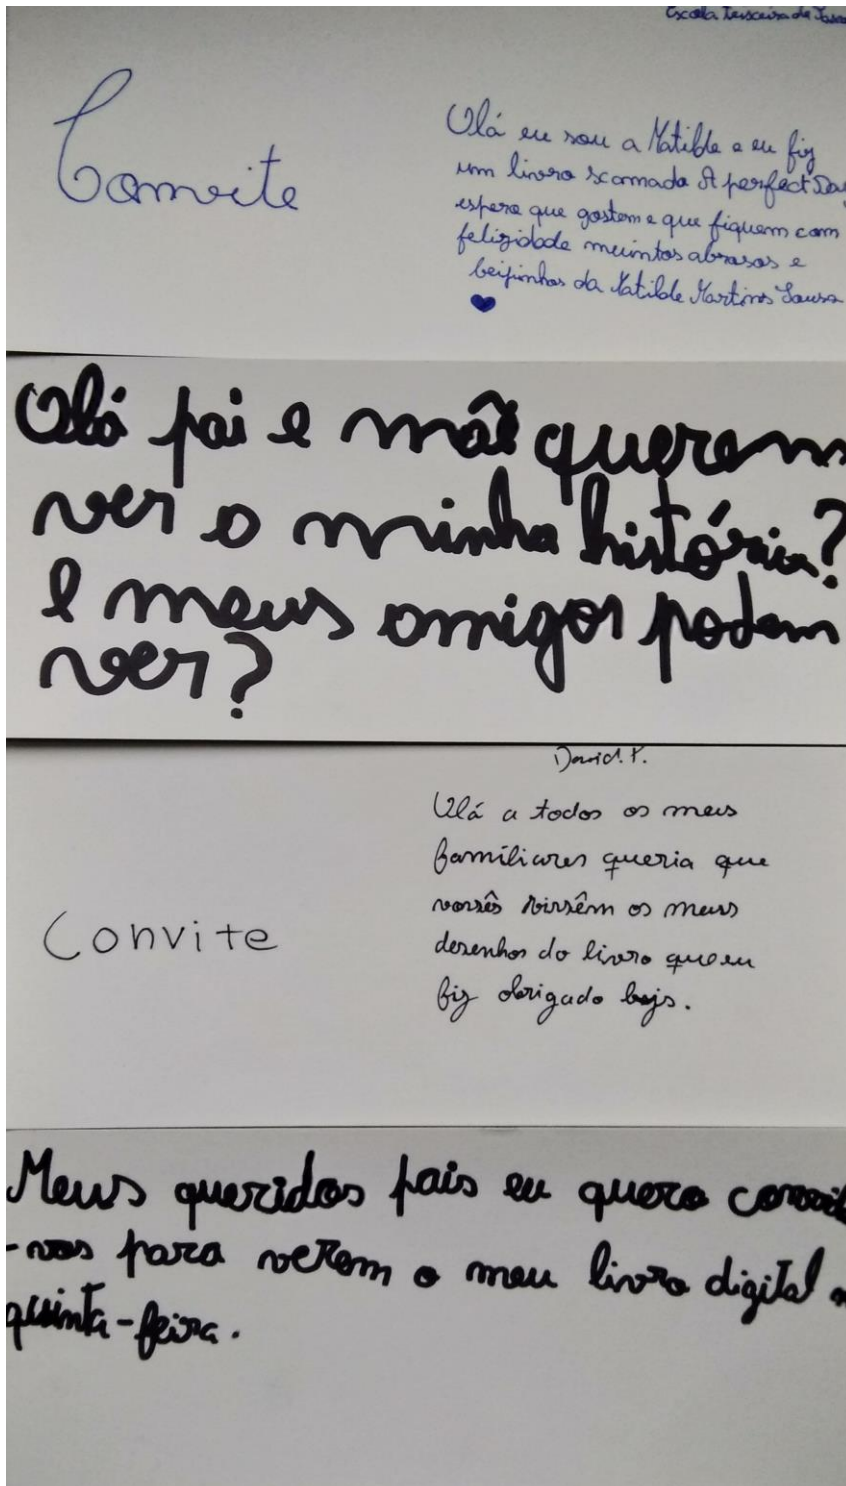 Escola Teixeira de
Convite
Olá eu sou a Matilde e eu fiz
um livro xamado A perfect Day
espero que gostem e que fiquem com
felizidade muintos abrasos e
beijinhos da Matilde Martins Sousa
Olá pai e mãe querem
ver o minha história?
E meus amigos podem
ver?
David.P.
Convite
Olá a todos os meus
familiares queria que
vossês vissêm os meus
desenhos do livro que eu
fiz obrigado bejs.
Meus queridos pais eu quero
-vos para verem o meu livro digital
quinta-feira.